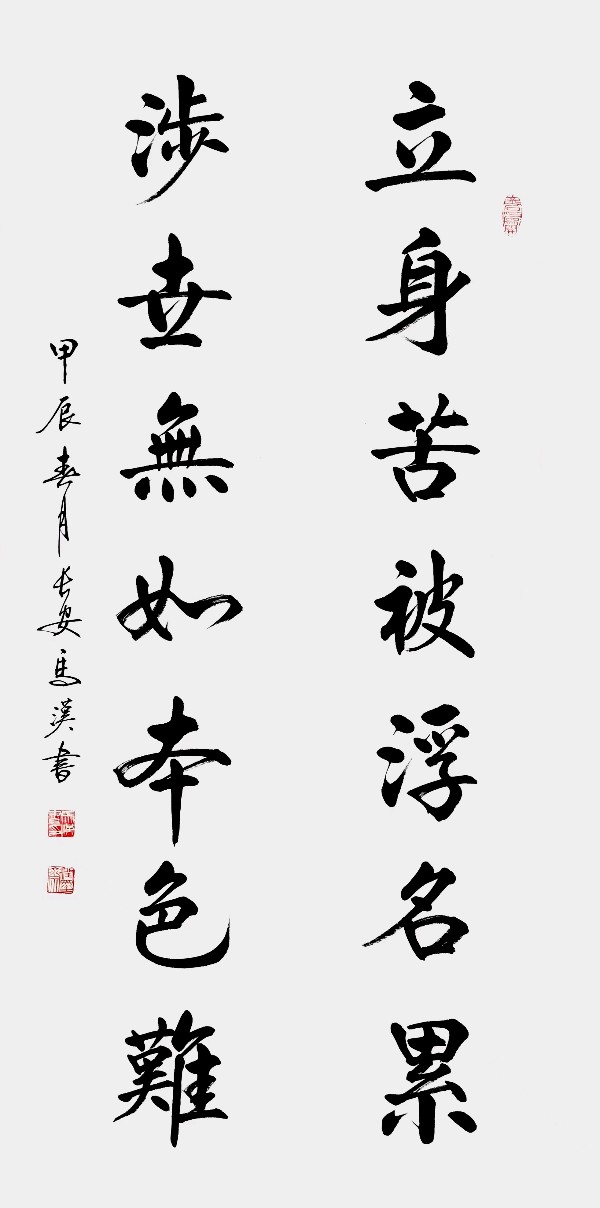 立身苦被浮名累
涉世無如本色難
甲辰春月長安馬漢書